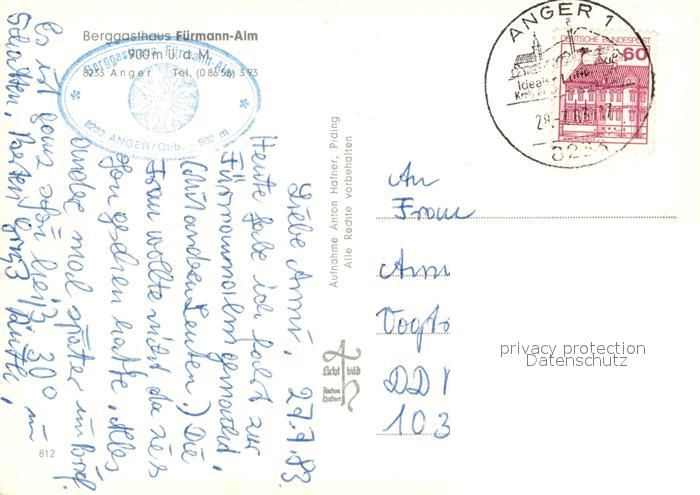 Berggasthaus Fürmann-Alm
900 m ü. d. M.
8233 Anger Tel. (08656) 393
Berggasthaus Fürmann-Alm
8233 ANGER/Obb. - 900 m
Liebe Anni, 27.7.83
Heute habe ich halst zur
Fürmannalm gemacht,
(mit anderen Leuten.) Die
Frau wollte nicht da sie s
schon gesehen hatte. Alles
andere mal später im Brief.
Es ist ganz schön heiß. 30° im
Schatten, Besten Gruß
Aufnahme Anton Hafner, Piding
Alle Rechte vorbehalten
Licht bild
Anton
Hafner
812
ANGER 1
DEUTSCHE BUNDESPOST
60
Ideal
28.-7.83-17
8233
An
Frau
Anni
Vogt
DDR
103
privacy protection
Datenschutz